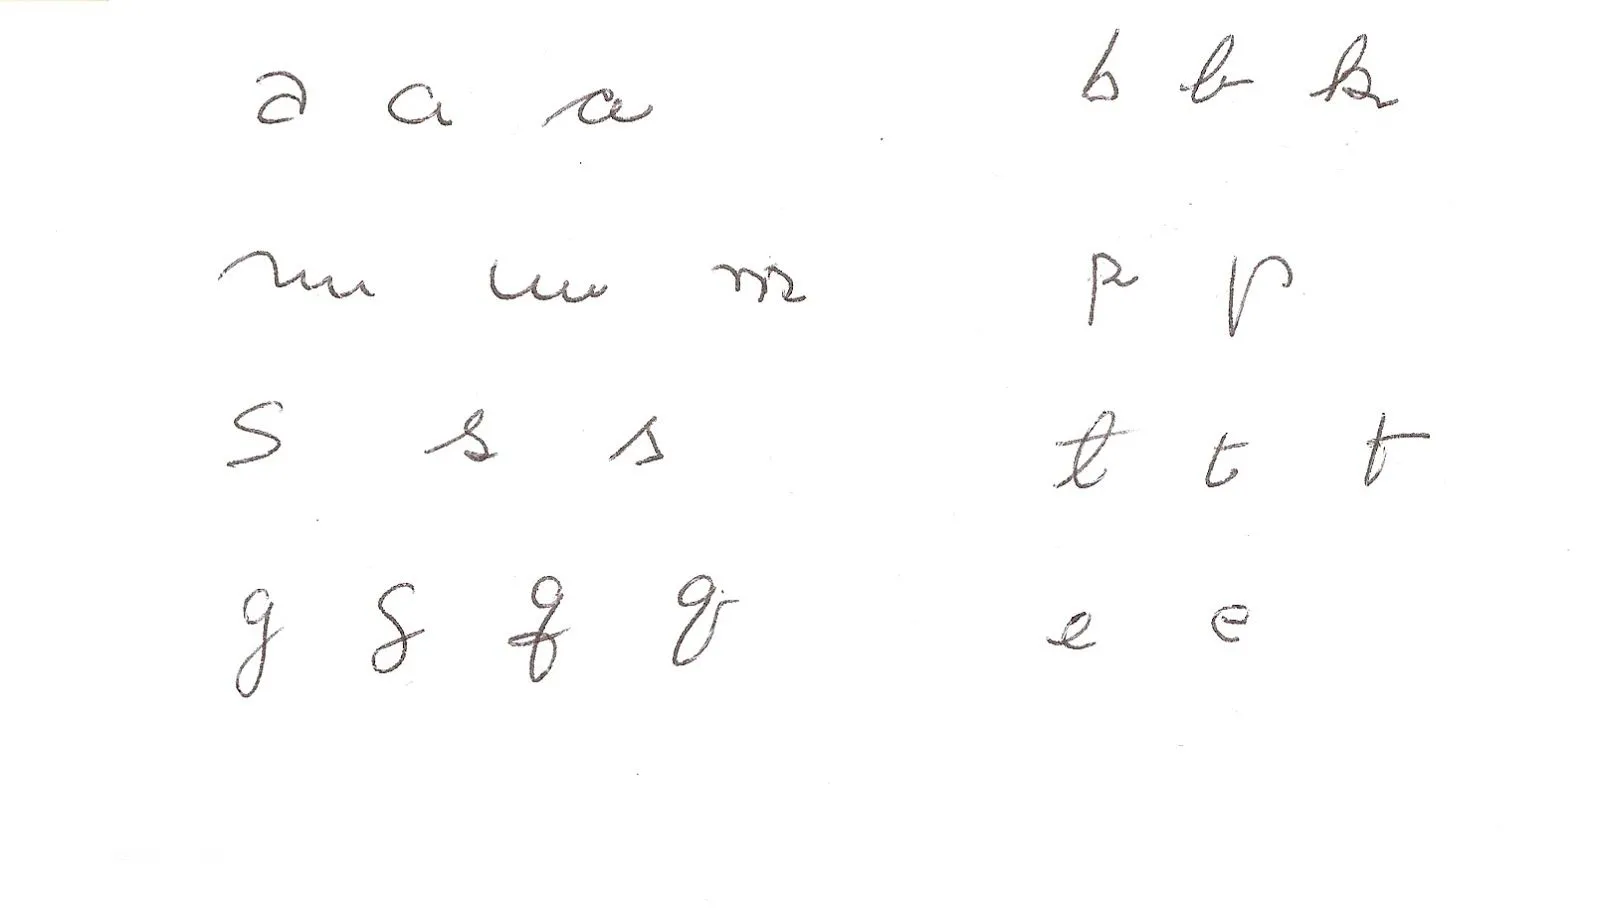 a a a b b b
m m m p p
s s s t t t
g g g g e e